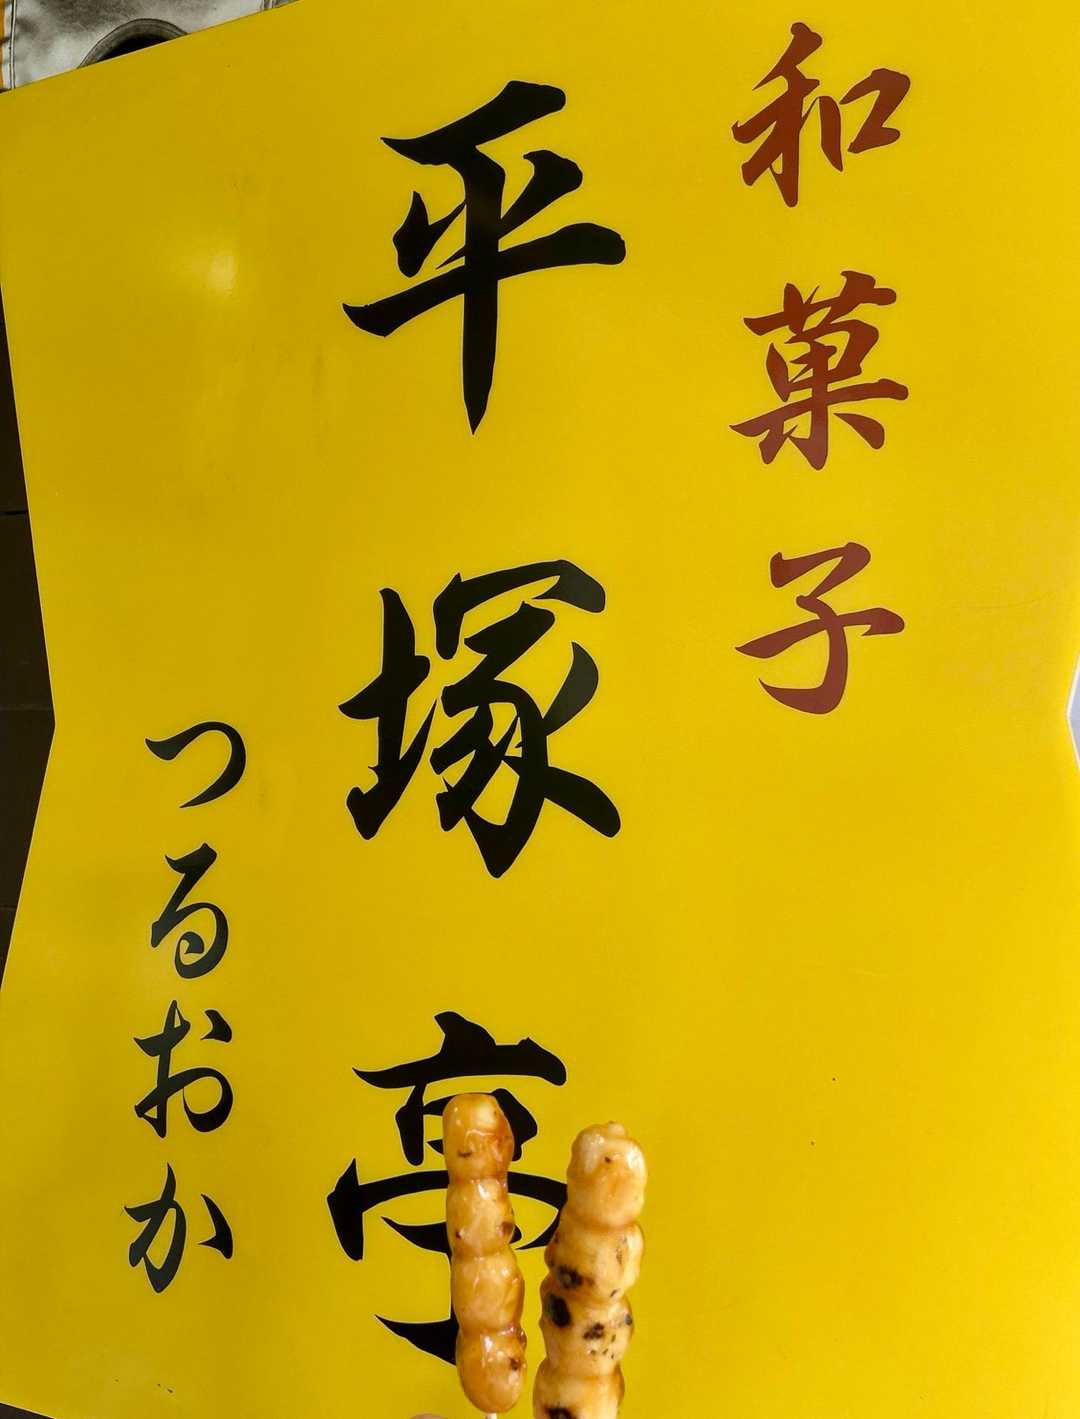 和菓子
平塚亭
つるおか